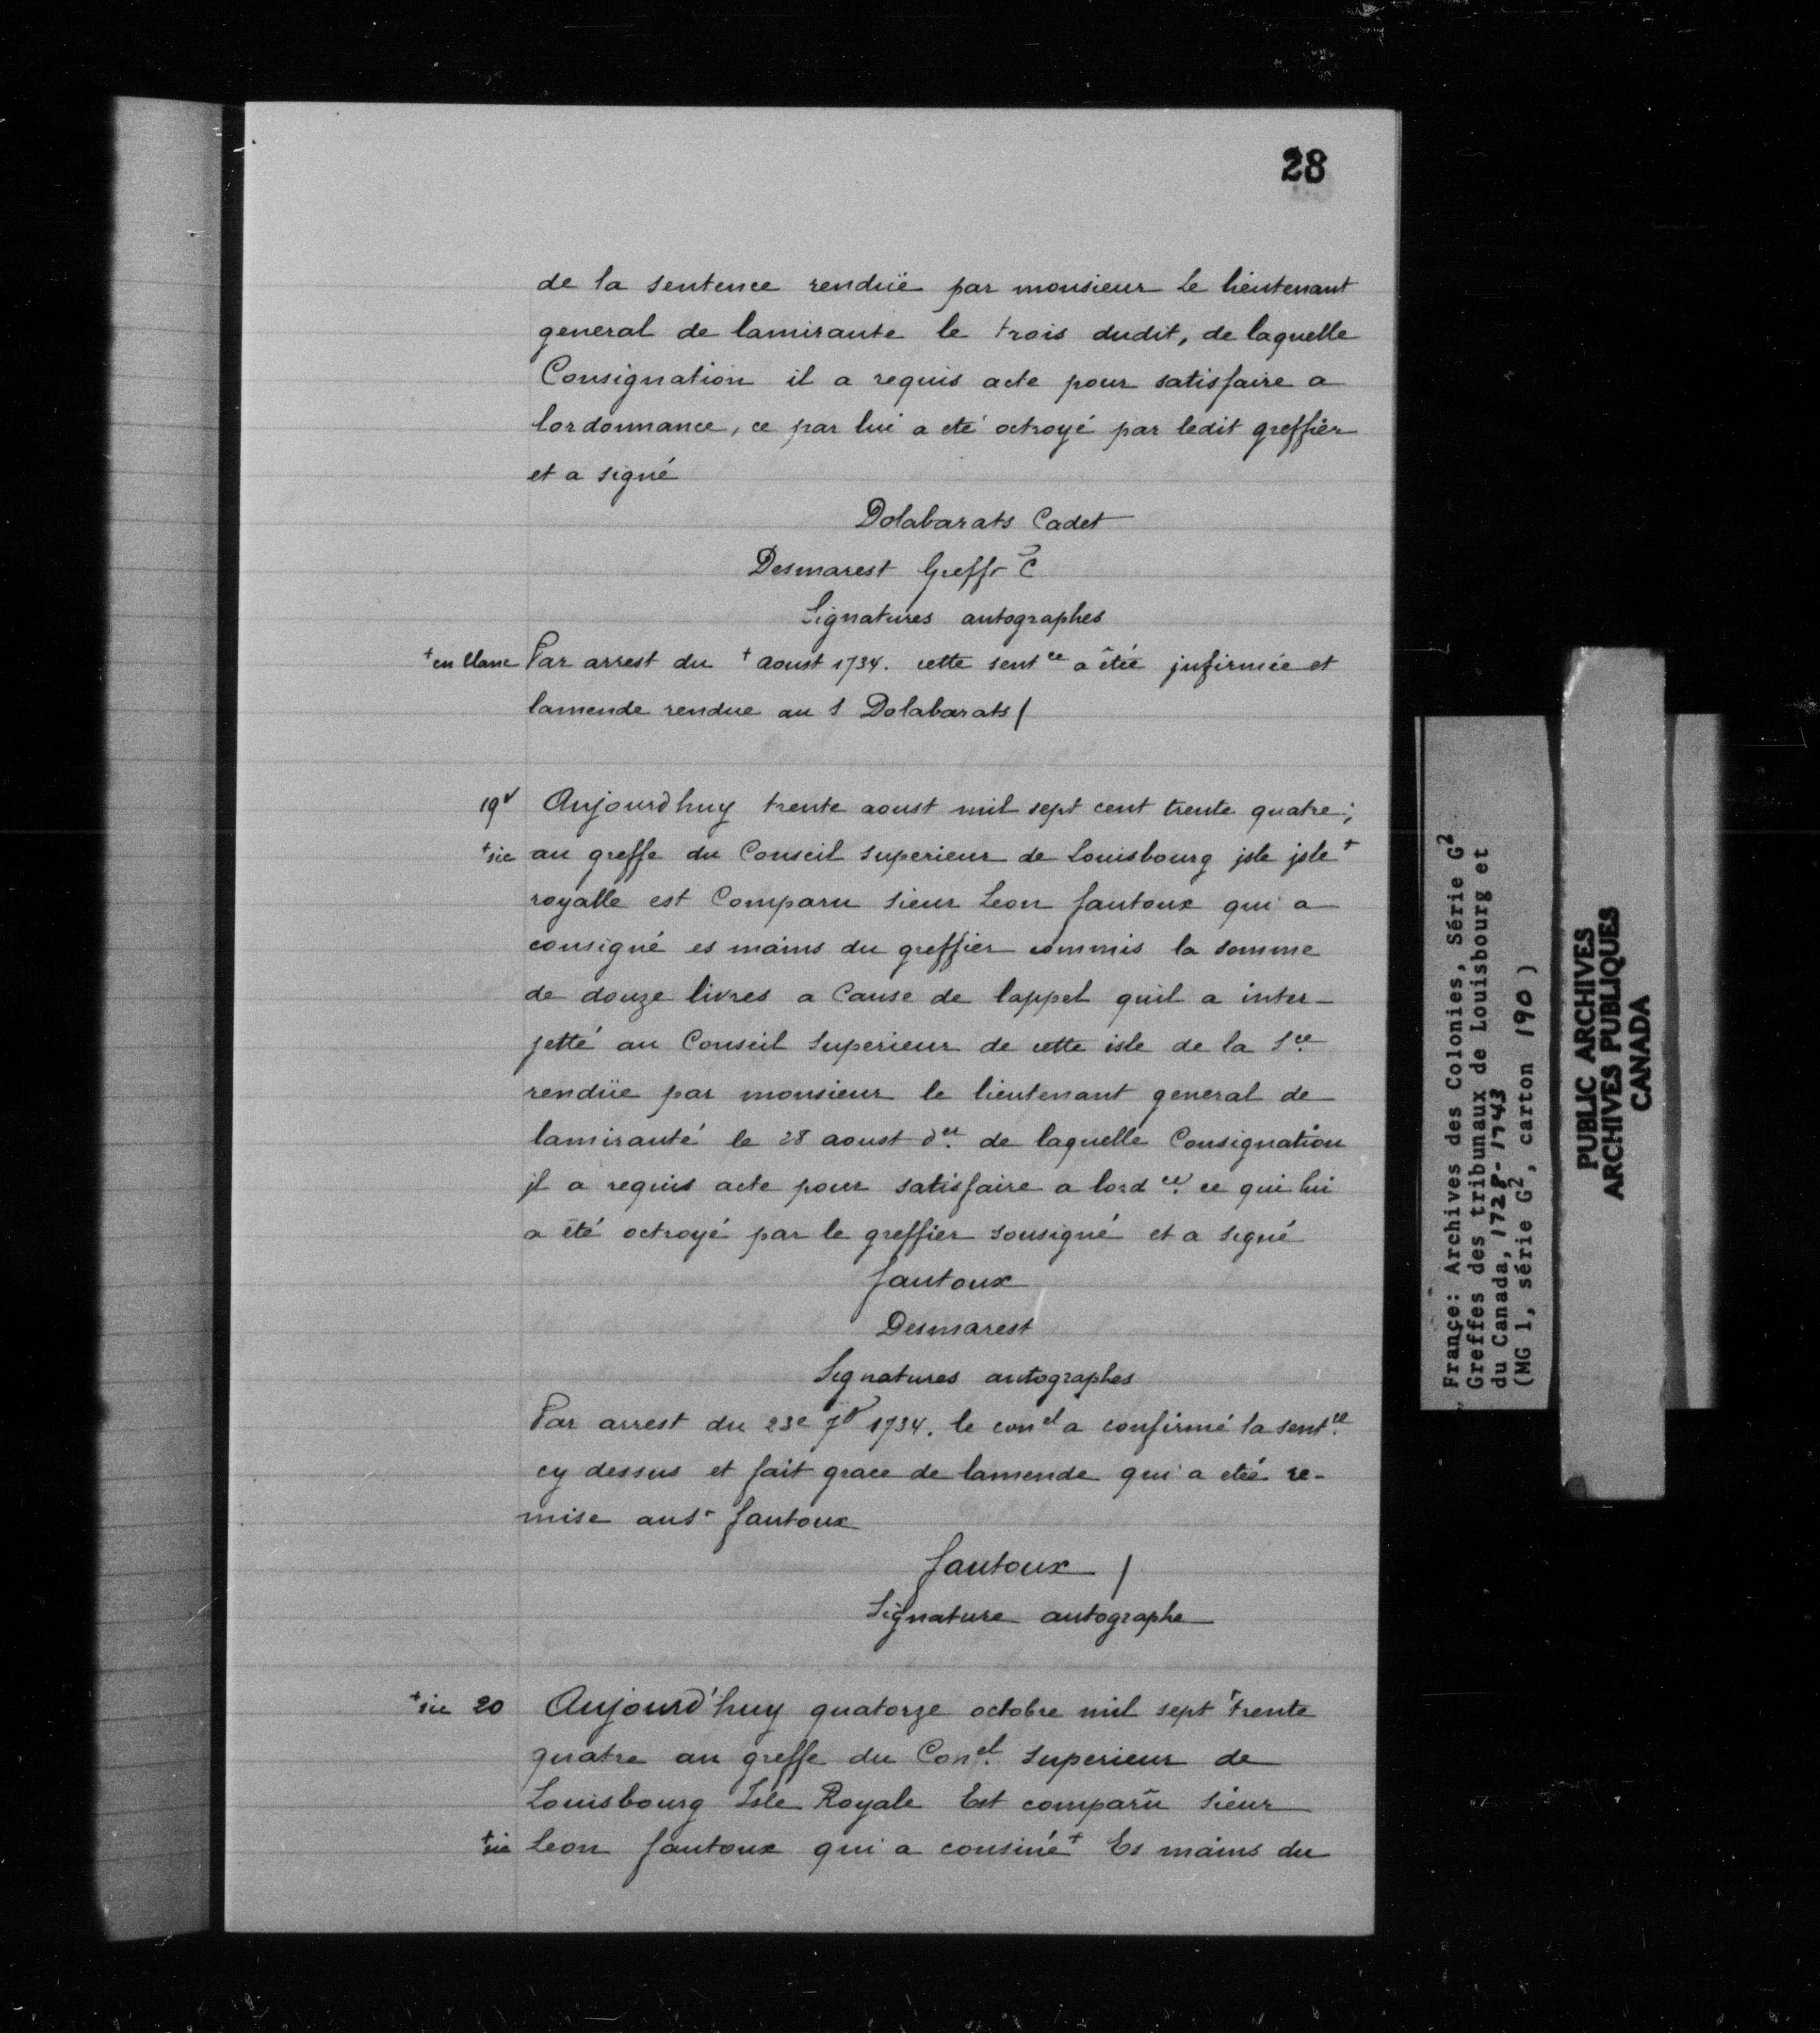 28
de la sentence rendüe par monsieur Le lieutenant
general de lamirauté le trois dudit, de laquelle
Consignation il a requis acte pour satisfaire a
lordonnance, ce par lui a eté octroyé par ledit greffier
et a signé
Dolabarats Cadet
Desmarest Greffr C
Signatures autographes
+en blanc Par arrest du + aoust 1734. cette sentce a êtée jnfirmée et
lamende rendue au S Dolabarats /
19v Aujourdhuy trente aoust mil sept cent trente quatre;
+sic au greffe du Conseil superieur de Louisbourg jsle jsle+
royalle est Comparu sieur Leon fautoux qui a
consigné es mains du greffier commis la somme
de douze livres a Cause de lappel quil a inter-
jetté au Conseil Superieur de cette isle de la Sce
rendüe par monsieur le lieutenant general de
lamirauté le 28 aoust der. de laquelle Consignation
jl a requis acte pour satisfaire a lordce. ce qui lui
a été octroyé par le greffier sousigné et a signé
fautoux
Desmarest
Signatures autographes
Par arrest du 23e 7b 1734. le conel a confirmé la sentce.
cy dessus et fait grace de lamende qui a etéé re-
mise au Sr fautoux
fautoux /
Signature autographe
+sic 20 Aujourd'huy quatorze octobre mil sept + trente
quatre au greffe du Conel. Superieur de
Louisbourg Isle Royale Est comparü sieur
+sic Leon fautoux qui a consiné+ Es mains du
France: Archives des Colonies, Série G2
Greffes des tribunaux de Louisbourg et
du Canada, 1728-1743
(MG 1, série G2, carton 190)
PUBLIC ARCHIVES
ARCHIVES PUBLIQUES
CANADA